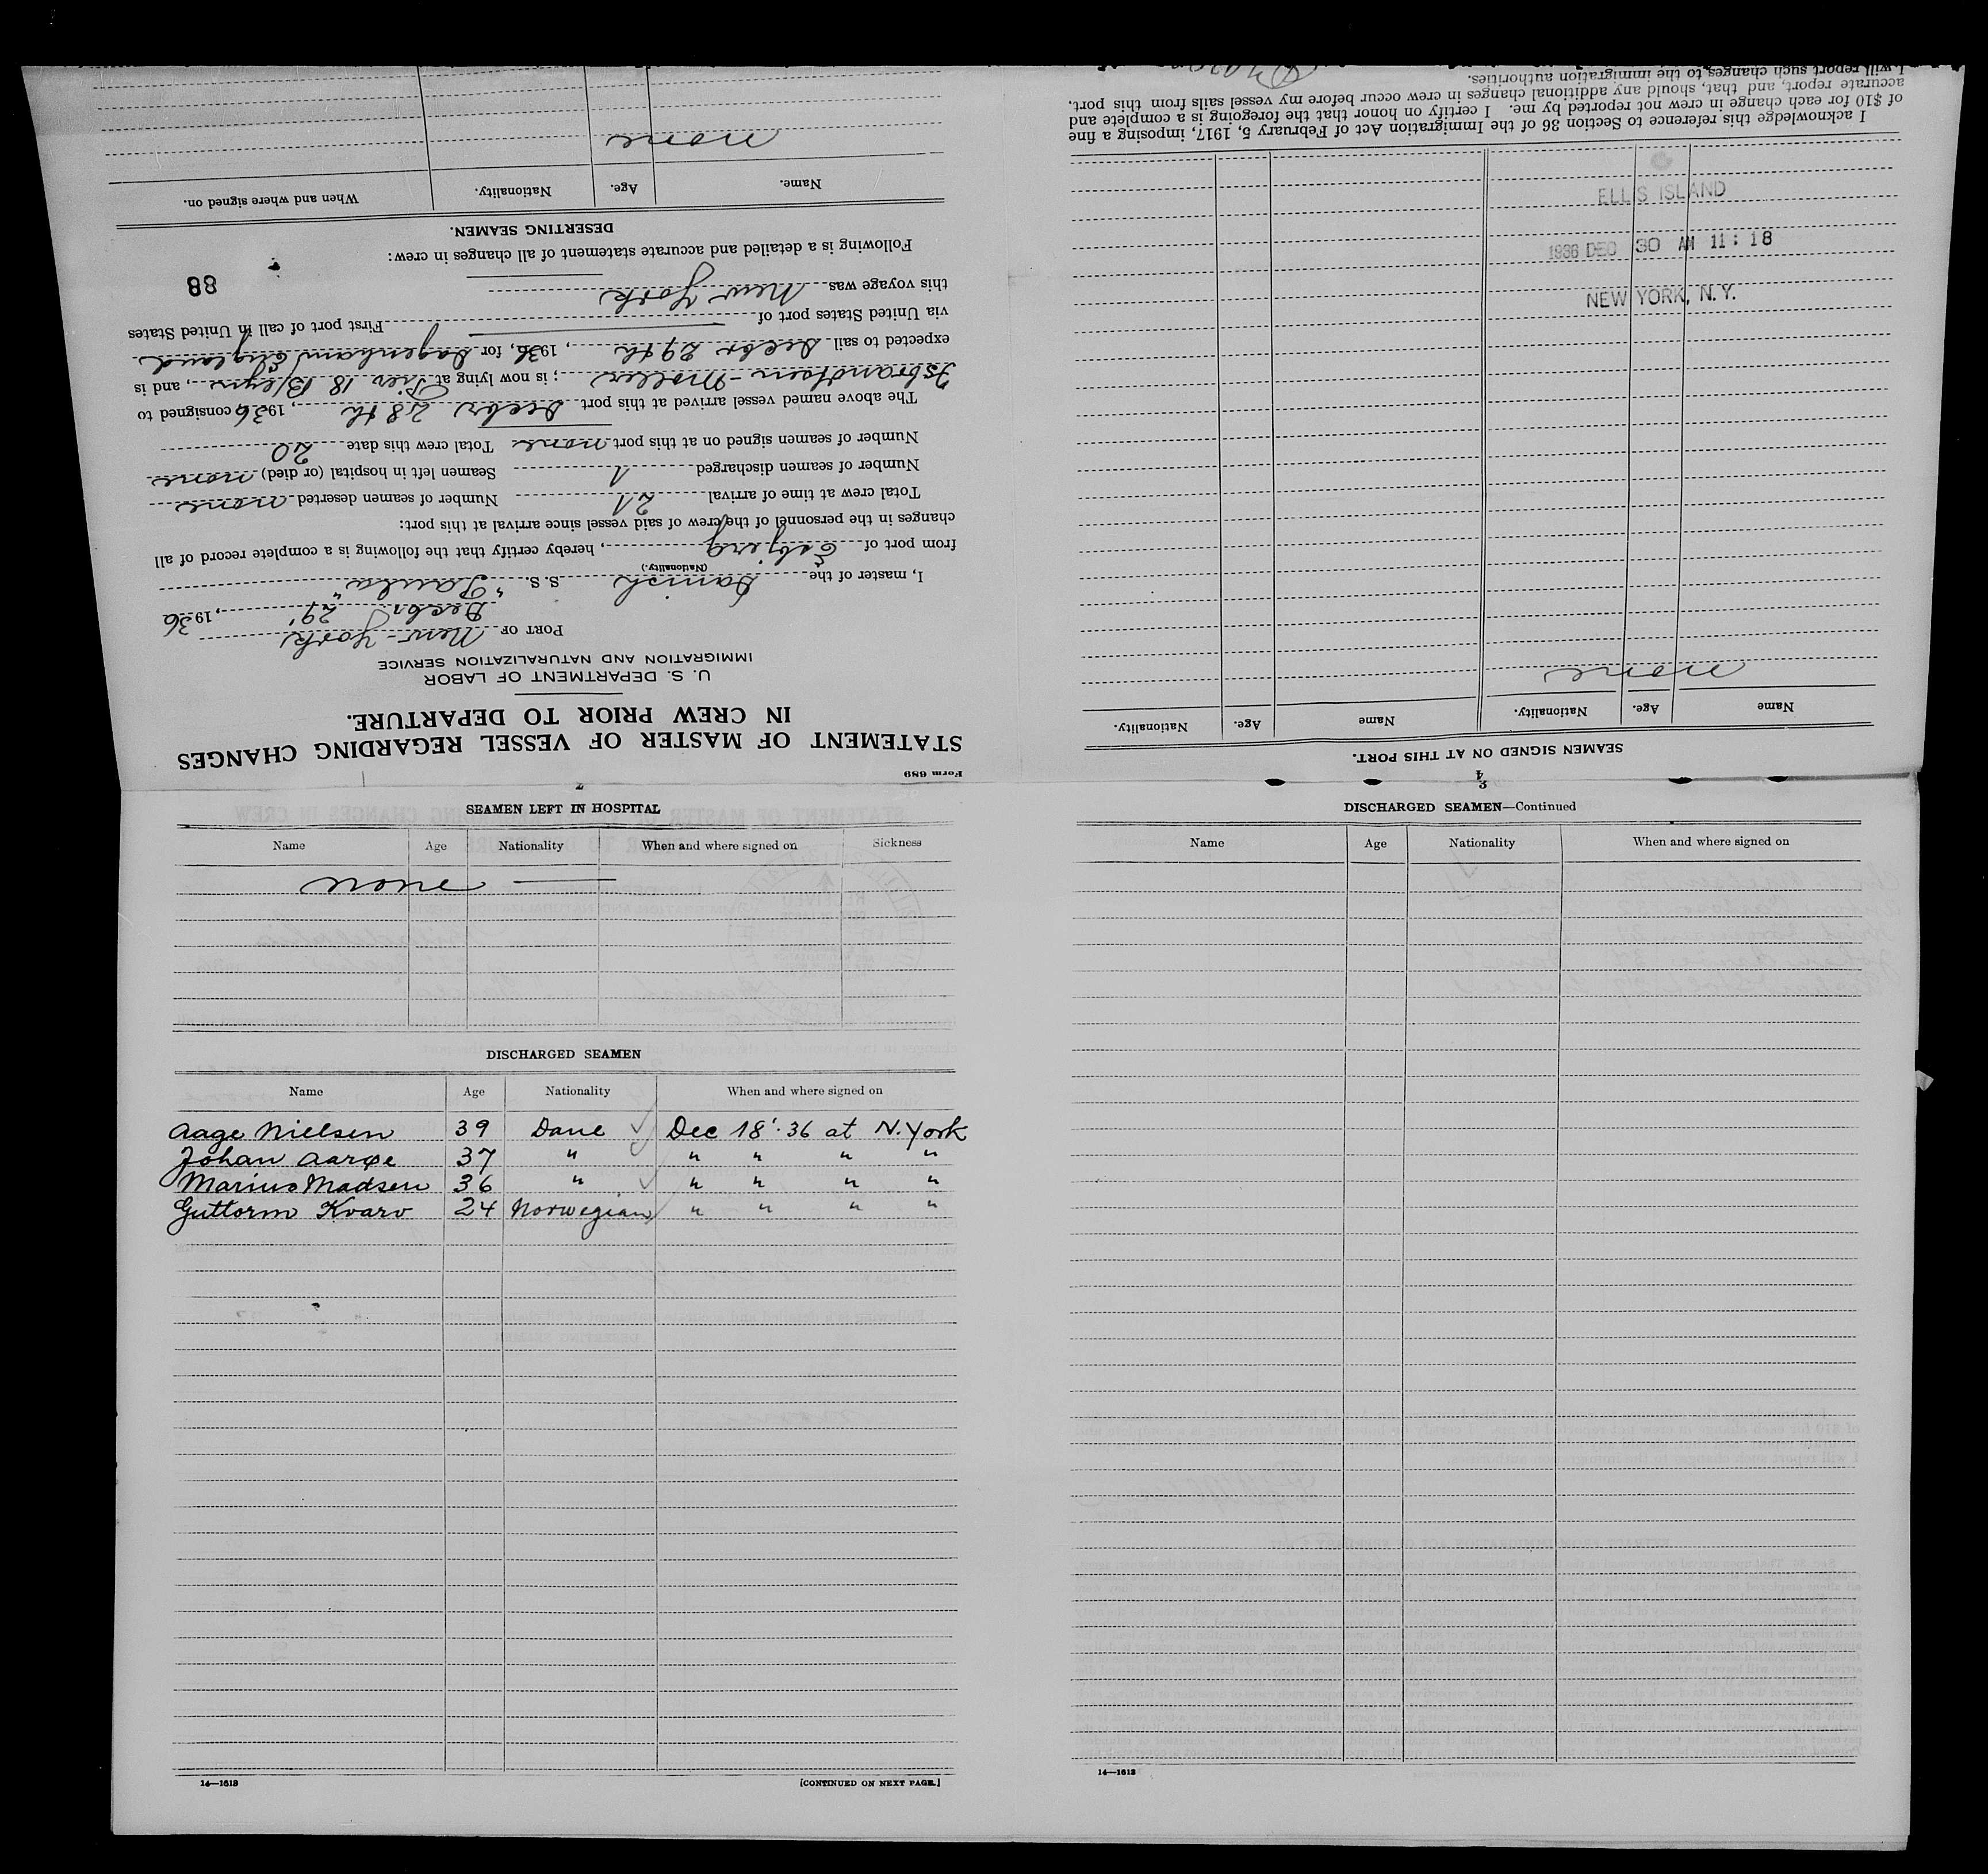 Form 689
STATEMENT OF MASTER OF VESSEL REGARDING CHANGES
IN CREW PRIOR TO DEPARTURE.
U. S. DEPARTMENT OF LABOR
IMMIGRATION AND NATURALIZATION SERVICE
PORT OF New-York
Decbr 29', 1936
I, master of the Danish S. S. "Paula"
(Nationality.)
from port of Esbjerg, hereby certify that the following is a complete record of all
changes in the personnel of the crew of said vessel since arrival at this port:
Total crew at time of arrival 21 Number of seamen deserted none
Number of seamen discharged 1 Seamen left in hospital (or died) none
Number of seamen signed on at this port none Total crew this date 20
The above named vessel arrived at this port Decbr 28th, 1936 consigned to
Isbrandtsen-Moller; is now lying at Pier 18 Bklyn, and is
expected to sail Decbr 29th, 1936, for Dagenham England
via United States port of First port of call in United States
this voyage was New York
88
Following is a detailed and accurate statement of all changes in crew:
DESERTING SEAMEN.
Name. Age. Nationality. When and where signed on.
none
SEAMEN SIGNED ON AT THIS PORT.
Name Age. Nationality. Name Age. Nationality.
none
NEW YORK, N.Y.
1936 DEC 30 AM 11:18
ELLIS ISLAND
I acknowledge this reference to Section 36 of the Immigration Act of February 5, 1917, imposing a fine
of $10 for each change in crew not reported by me. I certify on honor that the foregoing is a complete and
accurate report, and that, should any additional changes in crew occur before my vessel sails from this port,
I will report such changes to the immigration authorities.
SEAMEN LEFT IN HOSPITAL
Name Age Nationality When and where signed on Sickness
none
DISCHARGED SEAMEN
Name Age Nationality When and where signed on
Aage Nielsen 39 Dane Dec 18'.36 at N.York
Johan Aarøe 37 " " " " "
Marius Madsen 36 " " " " "
Guttorm Kvarv 24 Norwegian " " " "
14—1613 [CONTINUED ON NEXT PAGE.]
DISCHARGED SEAMEN—Continued
Name Age Nationality When and where signed on
14—1613